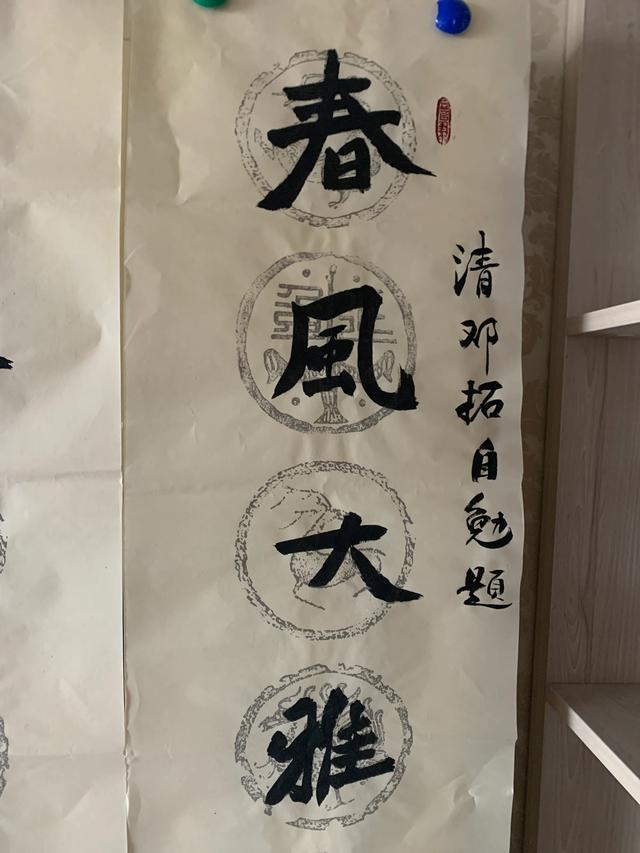 清邓拓自勉题
春風大雅